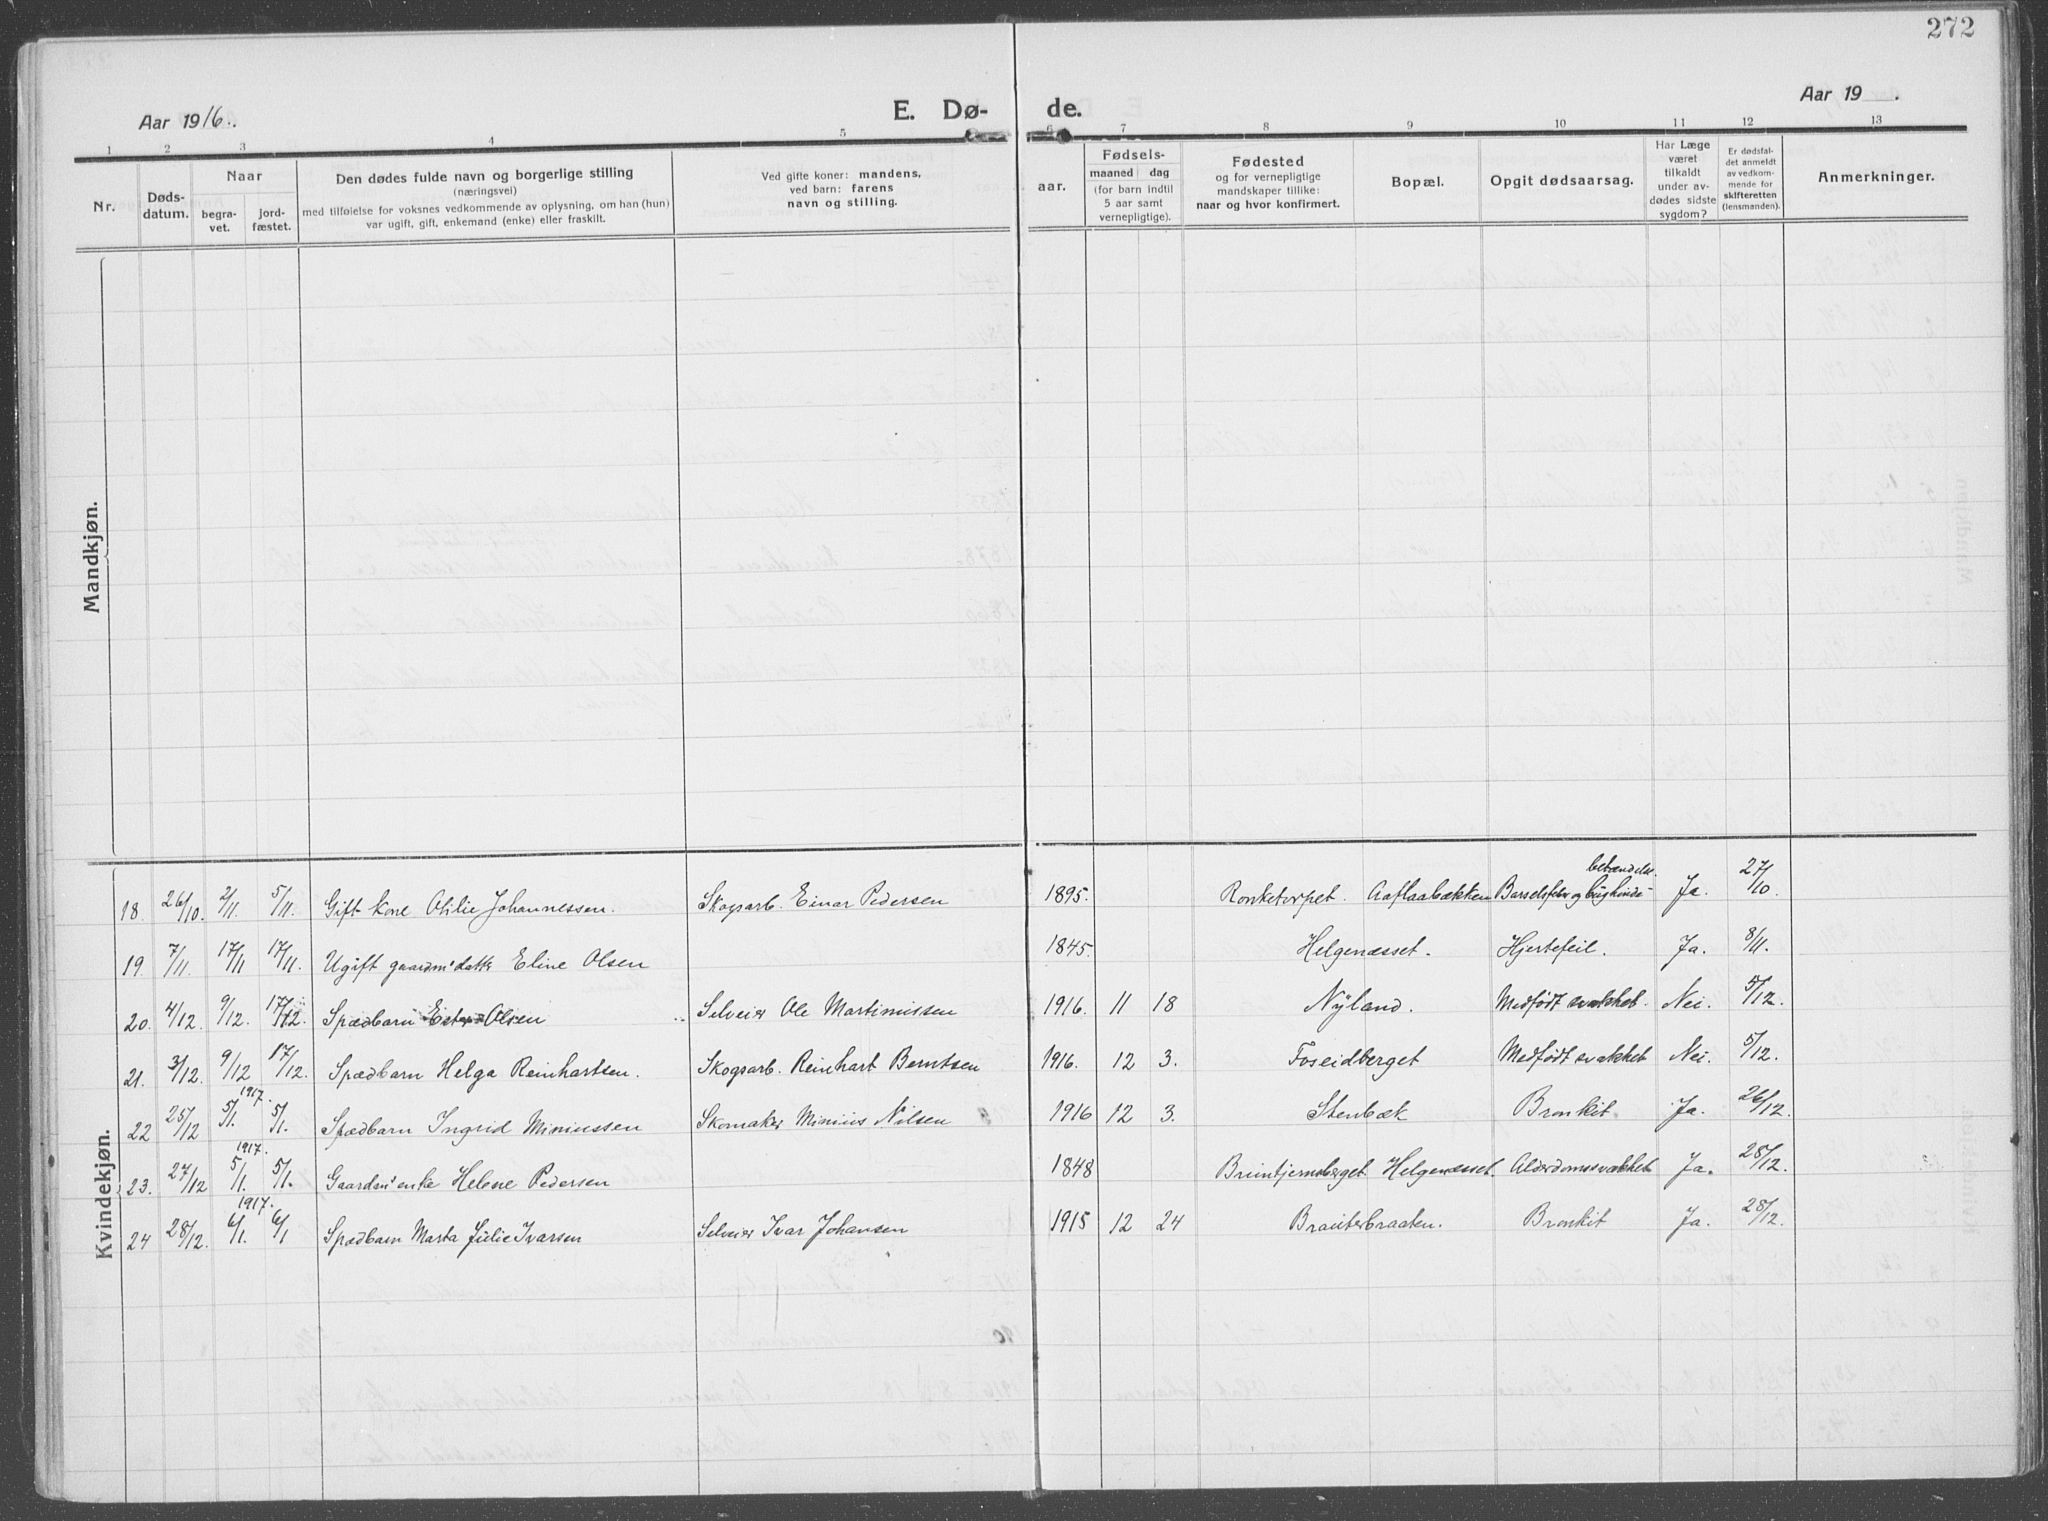 272
Aar 1916.
E. Dø- de.
Aar 19 .
1 2 3 4 5 6 7 8 9 10 11 12 13
Nr.
Døds-
datum.
Naar
begra-
vet.
jord-
fæstet.
Den dødes fulde navn og borgerlige stilling
(næringsvei)
med tilføielse for voksnes vedkommende av oplysning, om han (hun)
var ugift, gift, enkemand (enke) eller fraskilt.
Ved gifte koner: mandens,
ved barn: farens
navn og stilling.
aar.
Fødsels-
maaned dag
(for barn indtil
5 aar samt
vernepligtige).
Fødested
og for vernepligtige
mandskaper tillike:
naar og hvor konfirmert.
Bopæl.
Opgit dødsaarsag.
Har Læge
været
tilkaldt
under av-
dødes sidste
sygdom?
Er dødsfal-
det anmeldt
av vedkom-
mende for
skifteretten
(lensmanden).
Anmerkninger.
Mandkjøn.
Kvindekjøn.
18. 26/10. 2/11. 5/11. Gift kone Otilie Johannessen. Skogsarb. Einar Pedersen 1895. Ronketorpet. Aaflaabækken Barselsfeber og bughinde- betændelse. Ja. 27/10.
19. 7/11. 17/11 17/11. Ugift gaardm's datter Eline Olsen 1845. Helgenæsset. Hjertefeil. Ja. 8/11.
20. 4/12. 9/12. 17/12. Spædbarn Ester Olsen Selveier Ole Martinussen 1916. 11 18 Nyland. Medfødt svakhet. Nei. 5/12.
21. 3/12. 9/12 17/12. Spædbarn Helga Reinhartsen. Skogsarb. Reinhart Berntsen 1916. 12 3. Foseidberget Medfødt svakhet Nei. 5/12.
22 25/12 1917. 5/1. 5/1. Spædbarn Ingrid Miniussen Skomaker Minius Nilsen 1916 12 3. Stenbæk Bronkit Ja. 26/12.
23. 27/12 1917. 5/1. 5/1. Gaardm's enke Helene Pedersen 1848 Bruntjernsberget Helgenæsset. Alderdomssvakhet Ja. 28/12.
24 28/12. 1917. 6/1. 6/1 Spædbarn Marta Julie Ivarsen Selveier Ivar Johansen 1915 12 24 Brauterbraaten. Bronkit Ja. 28/12.